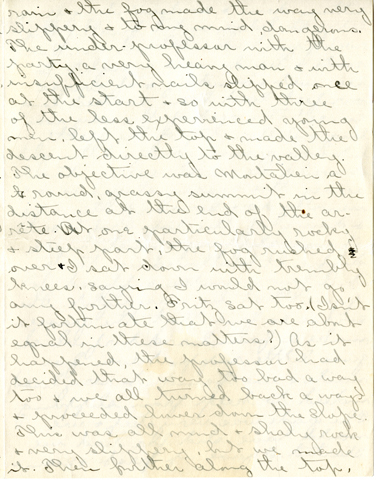 rain & the fog made the way very
slippery & to my mind, dangerous.
The under-professor with the
party, a very heavy man & with
insufficient nails slipped once
at the start & so with three
of the less experienced young
men, left the top & made the
descent directly to the valley.
The objective was a
round, grassy summit in the
distance at the end of the ar-
ête. At one particularly rocky
& steep part, the fog rushed
over & I sat down with trembly
knees, saying I would not go
any further. Fritz sat too. (Is it
it fortunate that we are about
equal in these matters?) As it
happened, the professor had
decided that was too bad a way
too & we all turned back a ways
& proceeded lower down the slope.
This was all mud & shaly rock
& very slippery, but we made
it. Then further along the top,